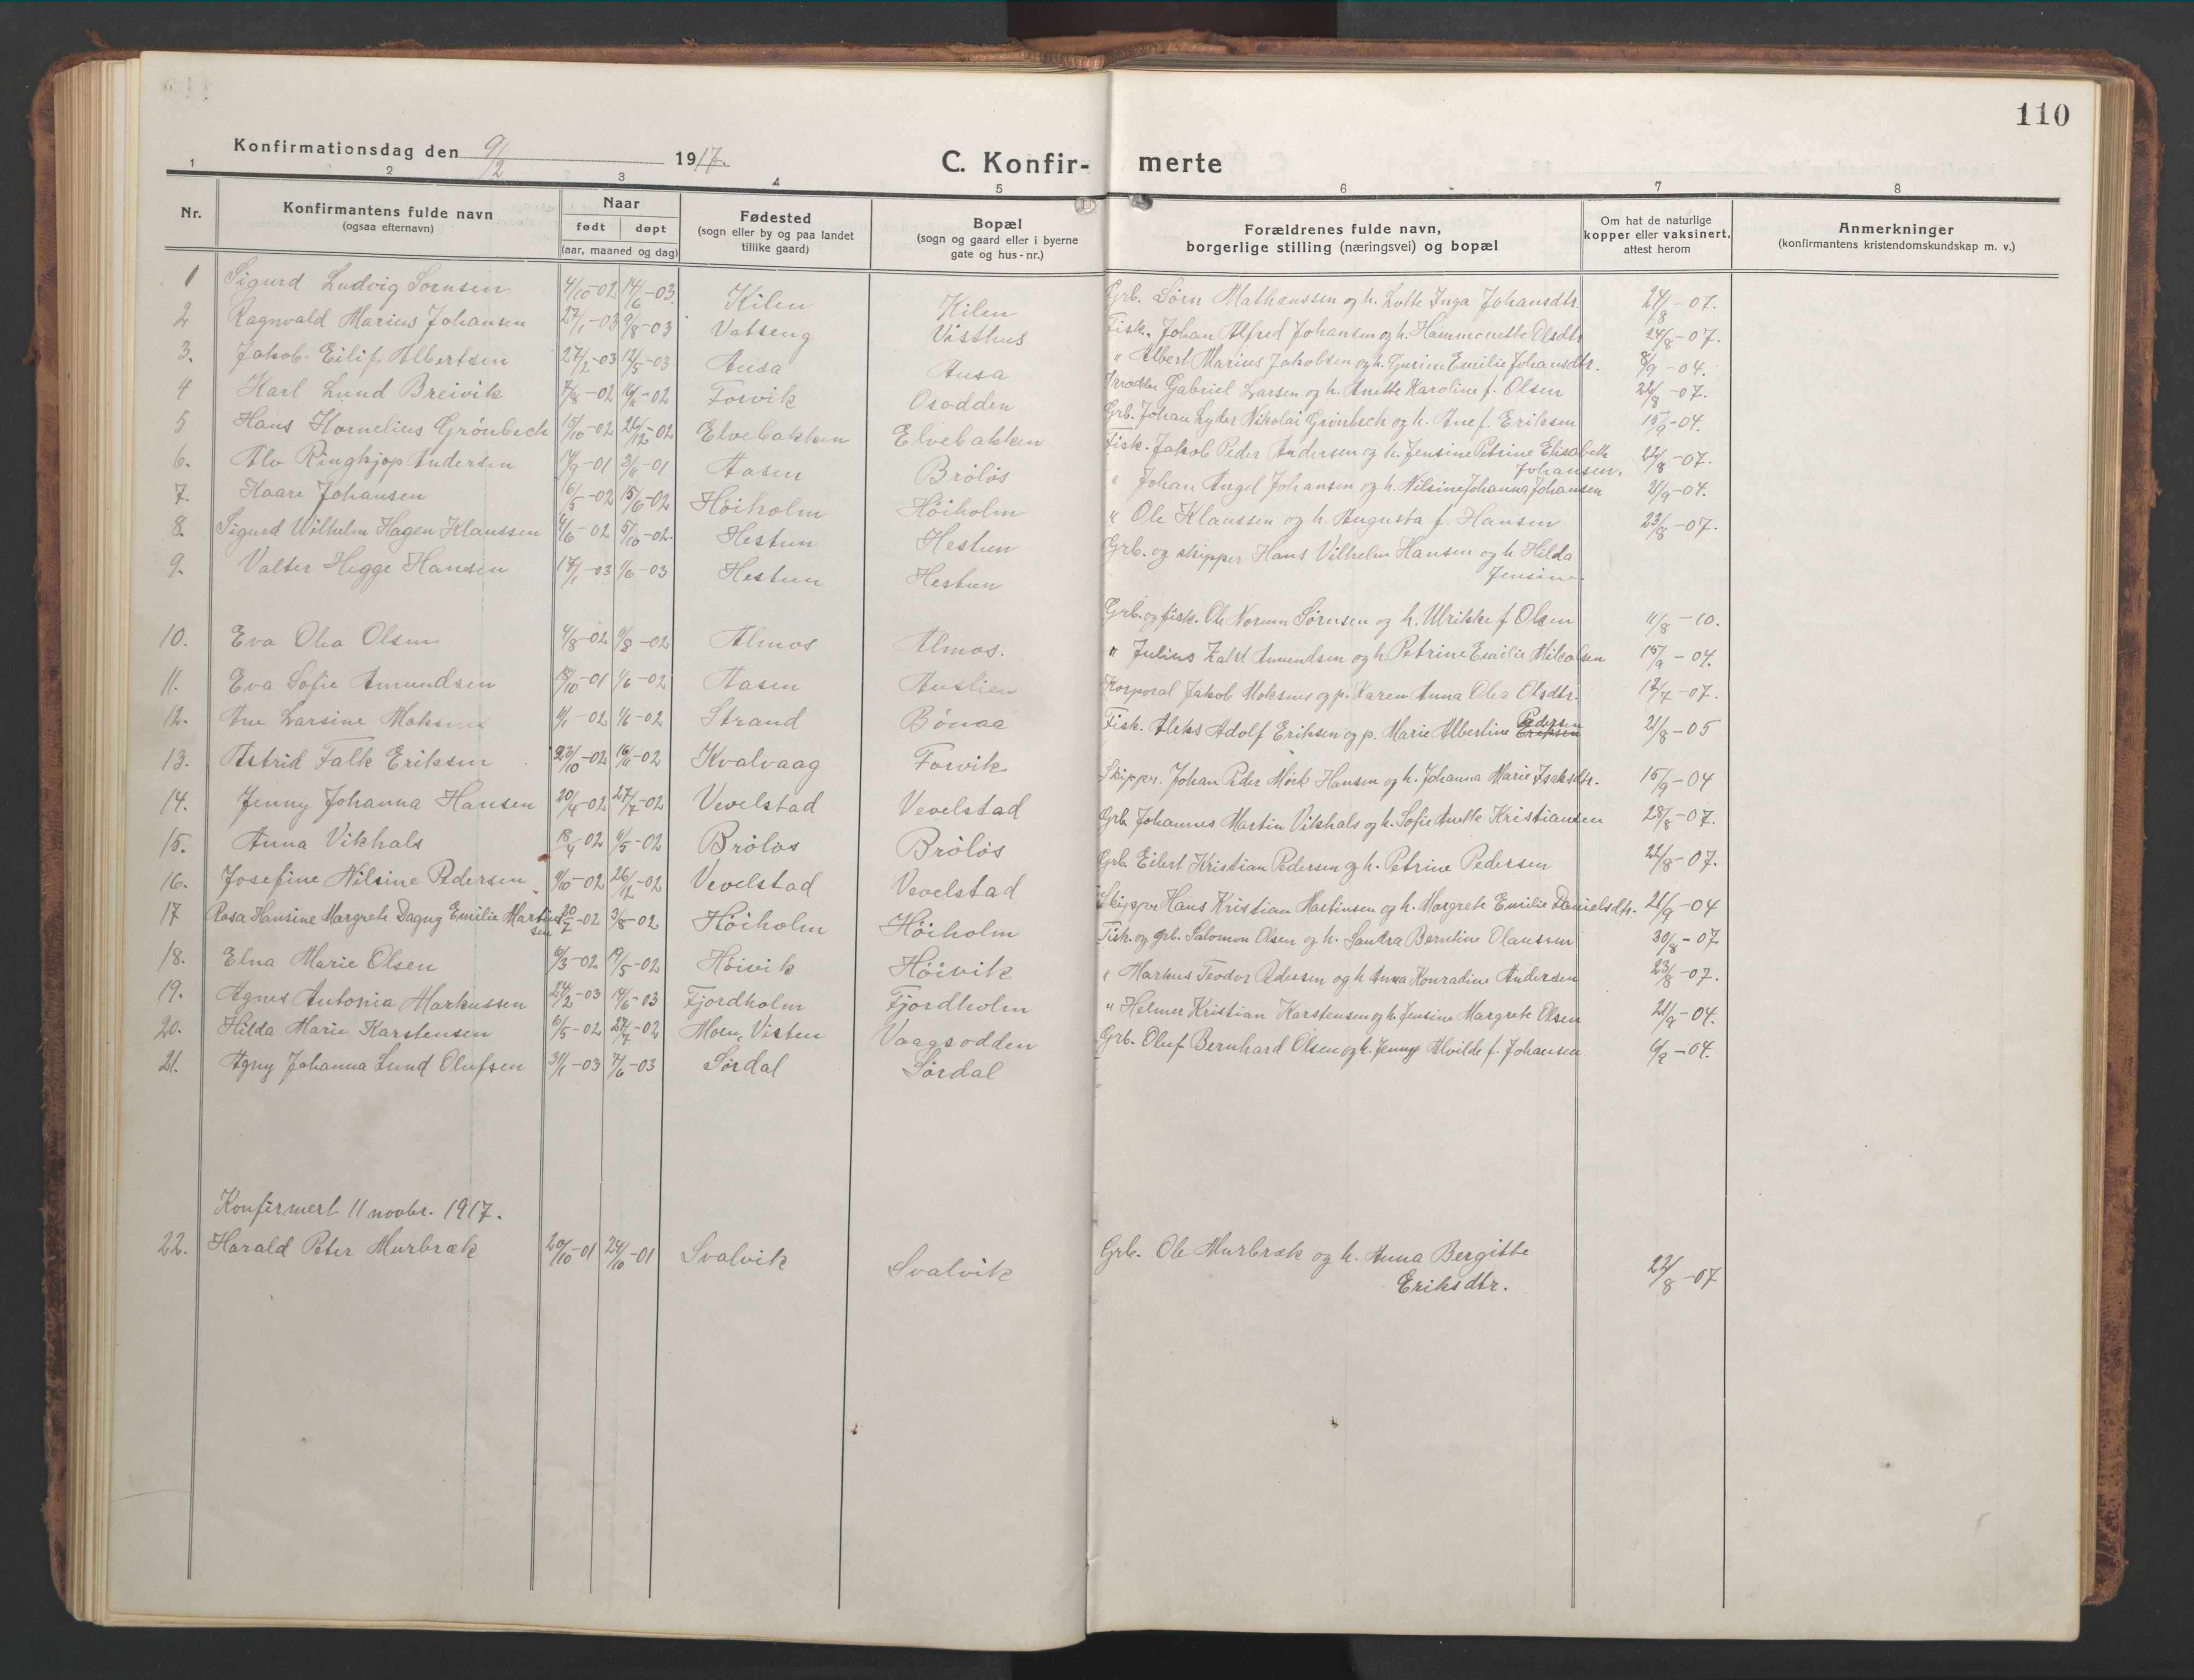 110
Konfirmationsdag den 9/2 1917.
C. Konfir- merte
1 2 3 4 5 6 7 8
Nr. Konfirmantens fulde navn (ogsaa efternavn) Naar født døpt (aar, maaned og dag) Fødested (sogn eller by og paa landet tillike gaard) Bopæl (sogn og gaard eller i byerne gate og hus-nr.) Forældrenes fulde navn, borgerlige stilling (næringsvei) og bopæl Om hat de naturlige kopper eller vaksinert, attest herom Anmerkninger (konfirmantens kristendomskundskap m. v.)
1 Sigurd Ludvig Sørnsen 4/10-02 14/6-03. Kilen Kilen Grb. Sørn Mathanssen og h. Lotte Inga Johansdtr. 24/8-07.
2 Ragnvald Marius Johansen 27/1-03 9/8-03 Vatseng Visthus Fisk. Johan Alfred Johansen og h. Hammenette Olsdtr 24/8-07.
3. Jakob Eilif Albertsen 27/2-03 12/5-03 Ausa Ausa " Albert Marius Jakobsen og h. Gurine Emilie Johansdtr. 8/9-04.
4 Karl Lund Breivik 7/8-02 -02 Forvik Osodden Gabriel Larsen og h. Anette Karoline f. Olsen 22/8-07.
5 Hans Kornelius Grönbech 15/10-02 26/12-02 Elvebakken Elvebakken Grb. Johan Lyder Nikolai Grönbech og h. Ane f. Eriksen 15/9-04.
6. Alv Ringkjøp Andersen 14/9-01 3/11-01 Aasen Bröløs Fisk. Jakob Peder Andersen og h. Jensine Petrine Elisabeth Johansen. 22/8-07.
7. Kaare Johansen 6/5-02 15/6-02 Höiholm Höiholm " Johan Angel Johansen og h. Nilsine Johanna Johansen 21/9-04.
8. Sigurd Wilhelm Hagen Klaussen 4/6-02 5/10-02. Hestun Hestun " Ole Klaussen og h. Augusta f. Hansen 23/8-07.
9. Valter Hegge Hansen 17/1-03 1/6-03 Hestun Hestun Grb. og skipper Hans Vilhelm Hansen og h. Hilda Jensine.
10. Eva Olea Olsen 4/8-02 -02 Almos Almos. Grb. og fisk. Ole Norum Sörnsen og h. Ulrikke f. Olsen 11/8-10.
11. Eva Sofie Amundsen 18/10-01 1/6-02 Aasen Auslien " Julius Zahl Amundsen og h. Petrine Emilie Mikalsen 15/9-04.
12. Ane Larsine Moksnes 11/1-02 1/6-02 Strand Bönaa Korporal Jakob Moksnes og p. Karen Anna Olea Olsdtr. 12/7-07.
13. Astrid Falk Eriksen 23/10-02 16/11-02 Kvalvaag Forvik Fisk. Aleks Adolf Eriksen og p. Marie Albertine Pedersen Eriksen 21/8-05
14. Jenny Johanna Hansen 20/4-02 27/7-02 Vevelstad Vevelstad Skipper. Johan Peder Mörk Hansen og h. Johanna Marie Isaksdtr. 15/9-04
15. Anna Vikhals 18/4-02 11/5-02 Bröløs Bröløs Grb. Johannes Martin Vikhals og h. Sofie Anette Kristiansen 28/8-07.
16. Josefine Nilsine Pedersen 9/10-02 26/12-02 Vevelstad Vevelstad Grb. Eilert Kristian Pedersen og h. Petrine Pedersen 22/8-07.
17 Rosa Hansine Margrete Dagny Emilie Martinsen 20/7-02 3/8-02 Höiholm Höiholm Skipper Hans Kristian Martinsen og h. Margrete Emilie Danielsdtr. 21/9-04
18. Elna Marie Olsen 6/3-02 19/5-02 Höivik Höivik Fisk. og grb. Salomon Olsen og h. Sandra Berntine Olaussen 30/8-07.
19. Agnes Antonia Markussen 24/2-03 14/6-03 Fjordholm Fjordholm " Markus Teodor Pedersen og h. Anna Konradine Andersen 23/8-07.
20. Hilda Marie Karstensen 6/5-02 27/7-02 Moen, Visten Vaagsodden " Helmer Kristian Karstensen og h. Jensine Margrete Olsen 21/9-04.
21. Agny Johanna Lund Olufsen 31/1-03 7/6-03 Sördal Sördal Grb. Oluf Bernhard Olsen og h. Jenny Alvilde f. Johansen -04.
Konfirmert 11 novbr. 1917.
22. Harald Peter Murbræk 20/10-01 24/10-01 Svalvik Svalvik Grb. Ole Murbræk og h. Anna Bergitte Eriksdtr. 22/8-07